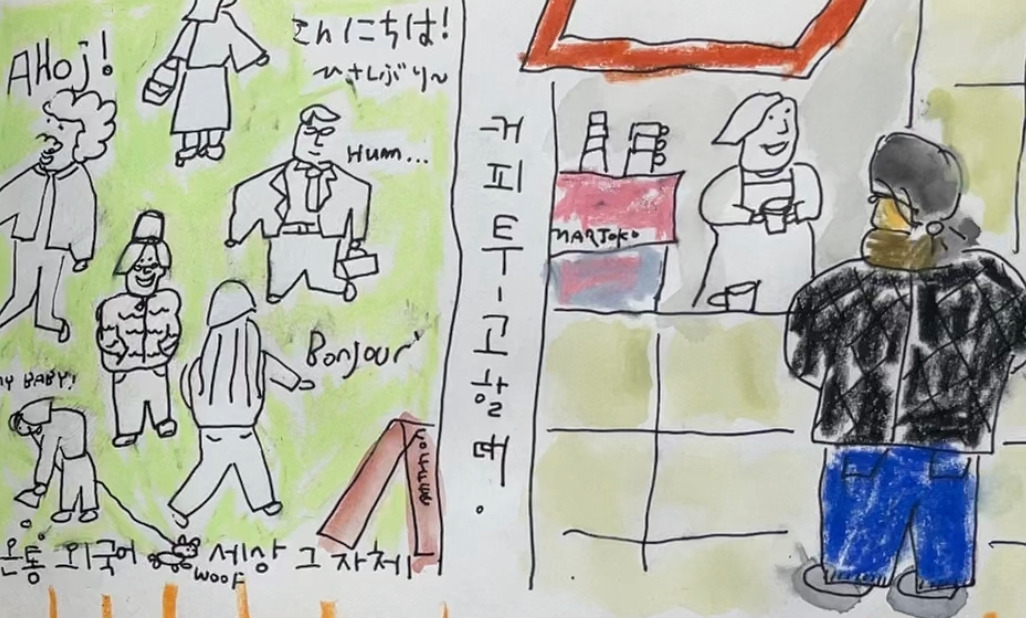 AHoj!
こんにちは!
ひさしぶり~
Hum...
Y BABY!
Bonjour
커피 투-고 할
온통 외국어 세상 그 자체
woof